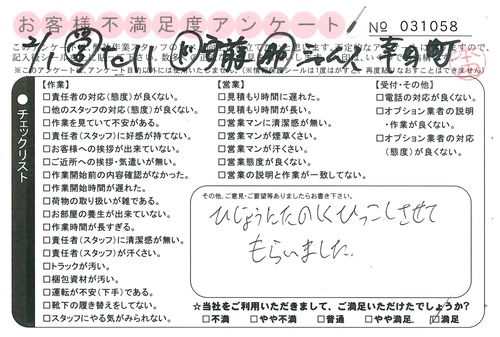 お客様不満足度アンケート
№ 031058
チェックリスト
【作業】
□責任者の対応(態度)が良くない。
□他のスタッフの対応(態度)が良くない。
□作業を見ていて不安がある。
□責任者(スタッフ)に好感が持てない。
□お客様への挨拶が出来ていない。
□ご近所への挨拶・気遣いが無い。
□作業開始前の内容確認がなかった。
□作業開始時間が遅れた。
□荷物の取り扱いが雑である。
□お部屋の養生が出来ていない。
□作業時間が長すぎる。
□責任者(スタッフ)に清潔感が無い。
□責任者(スタッフ)が汗くさい。
□トラックが汚い。
□梱包資材が汚い。
□運転が不安(下手)である。
□靴下の履き替えをしてない。
□スタッフにやる気がみられない。
【営業】
□見積もり時間に遅れた。
□見積もり時間が長い。
□営業マンに清潔感が無い。
□営業マンが煙草くさい。
□営業マンが汗くさい。
□営業態度が良くない。
□営業の説明と作業が一致してない。
【受付・その他】
□電話の対応が良くない。
□オプション業者の説明・作業が良くない。
□オプション業者の対応(態度)が良くない。
その他、ご意見・ご要望等ありましたらお書き下さい。
ひじょうにたのしくひっこしさせて
もらいました。
☆当社をご利用いただきまして、ご満足いただけたでしょうか?
□不満 □やや不満 □普通 □やや満足 □満足